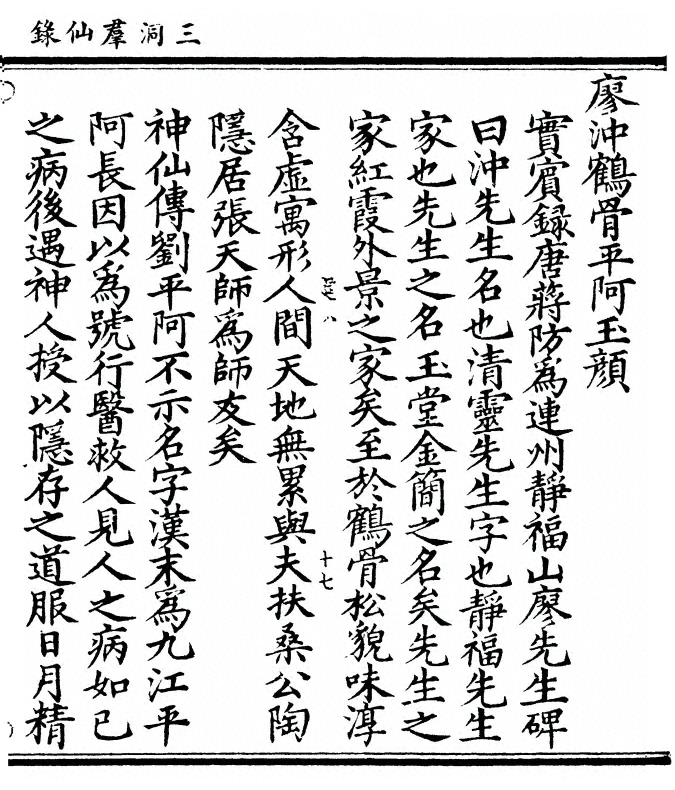 三洞羣仙錄
廖沖鶴骨平阿玉顔
實賓録唐蔣防爲連州靜福山廖先生碑
曰沖先生名也清靈先生字也靜福先生
家也先生之名玉堂金簡之名矣先生之
家紅霞外景之家矣至於鶴骨松貌味淳
含虛寓形人間天地無累與夫扶桑公陶
隱居張天師爲師友矣
神仙傳劉平阿不示名字漢末爲九江平
阿長因以爲號行醫救人見人之病如己
之病後遇神人授以隱存之道服日月精
八
十七